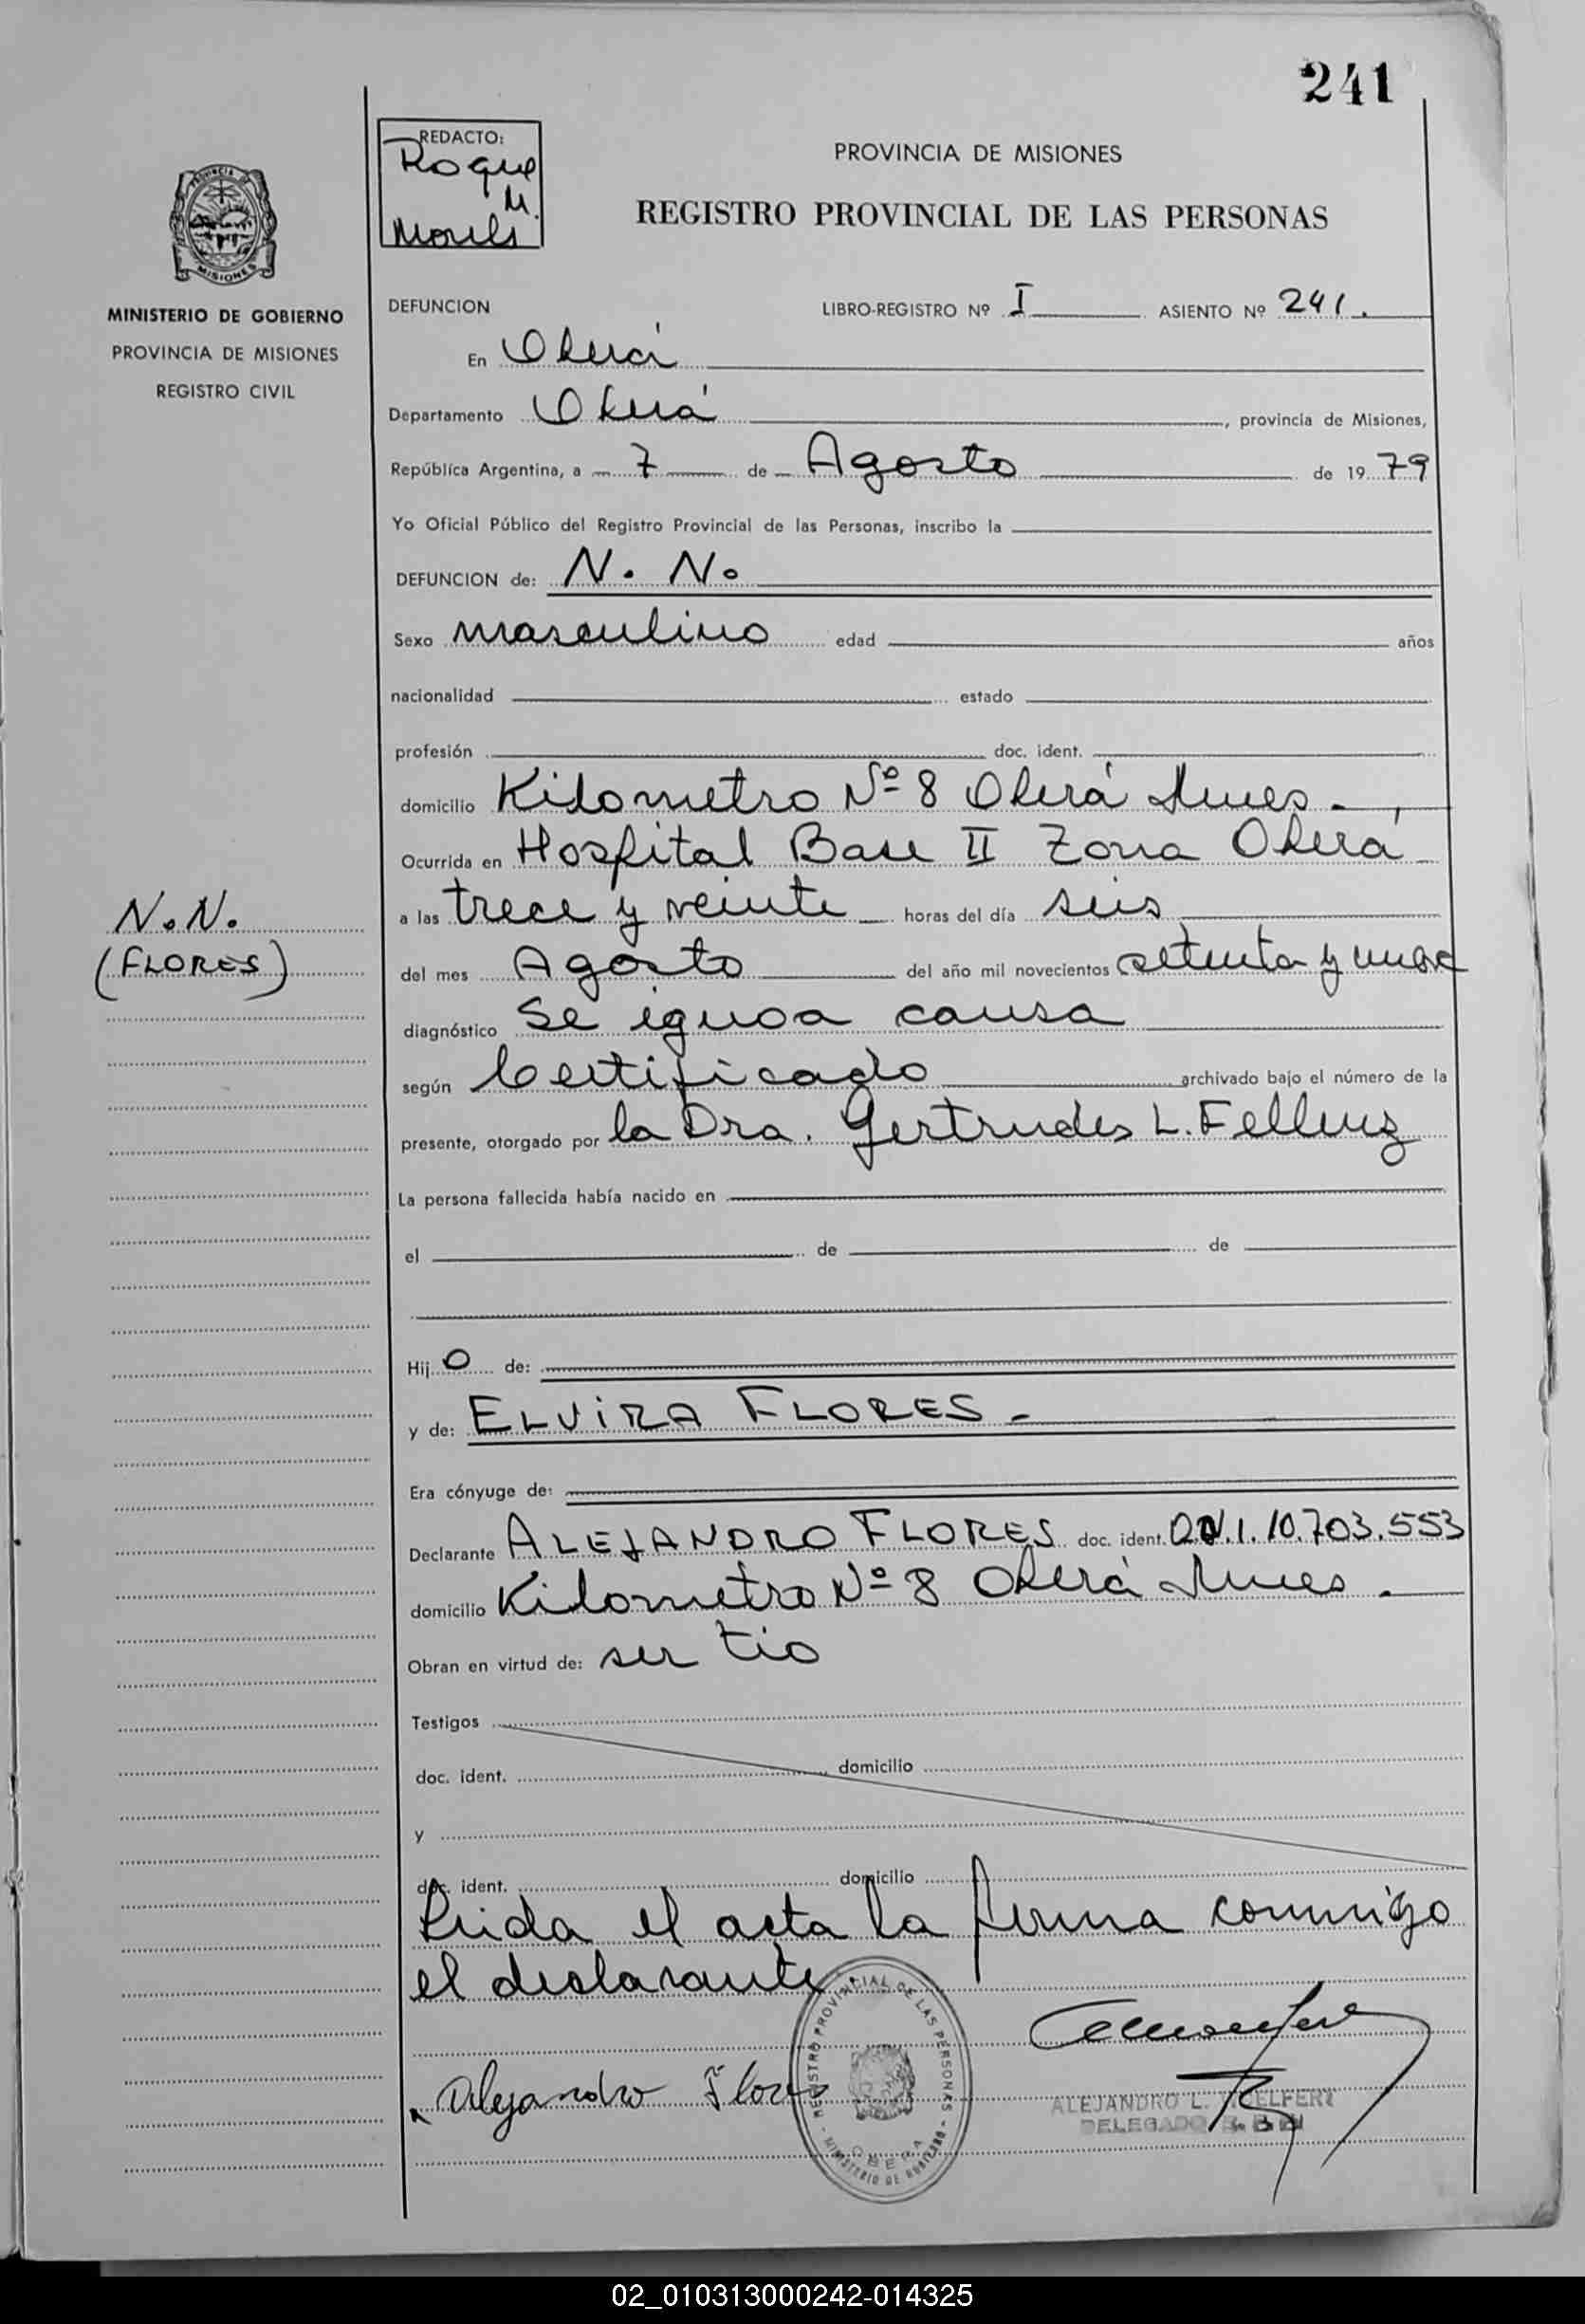 241
REDACTO:
Roque
M.
PROVINCIA DE MISIONES
REGISTRO PROVINCIAL DE LAS PERSONAS
PROVINCIA
MISIONES
MINISTERIO DE GOBIERNO
PROVINCIA DE MISIONES
REGISTRO CIVIL
DEFUNCION LIBRO-REGISTRO Nº I ASIENTO Nº 241.
En Oberá
Departamento Oberá, provincia de Misiones,
República Argentina, a 7 de Agosto de 1979
Yo Oficial Público del Registro Provincial de las Personas, inscribo la
DEFUNCION de: N. N.
Sexo masculino edad años
nacionalidad estado
profesión doc. ident.
domicilio Kilometro Nº 8 Oberá Mnes.
Ocurrida en Hospital Base II Zona Oberá
a las trece y veinte horas del día seis
N.N.
(FLORES)
del mes Agosto del año mil novecientos setenta y nueve
diagnóstico Se ignoa causa
según Certificado archivado bajo el número de la
presente, otorgado por la Dra. Gertrudes L. Fellenz
La persona fallecida había nacido en
el de de
Hijo de:
y de: ELVIRA FLORES.-
Era cónyuge de:
Declarante ALEJANDRO FLORES doc. ident. D.N.I. 10.703.553
domicilio Kilometro Nº 8 Oberá Mnes.
Obran en virtud de: ser tio
Testigos
doc. ident. domicilio
y
doc. ident. domicilio
Leida el acta la firma conmigo
el declarante.
Alejandro Flores
REGISTRO PROVINCIAL DE LAS PERSONAS - MINISTERIO DE GOBIERNO -
OBERA
ALEJANDRO L.
DELEGADO
02_010313000242-014325